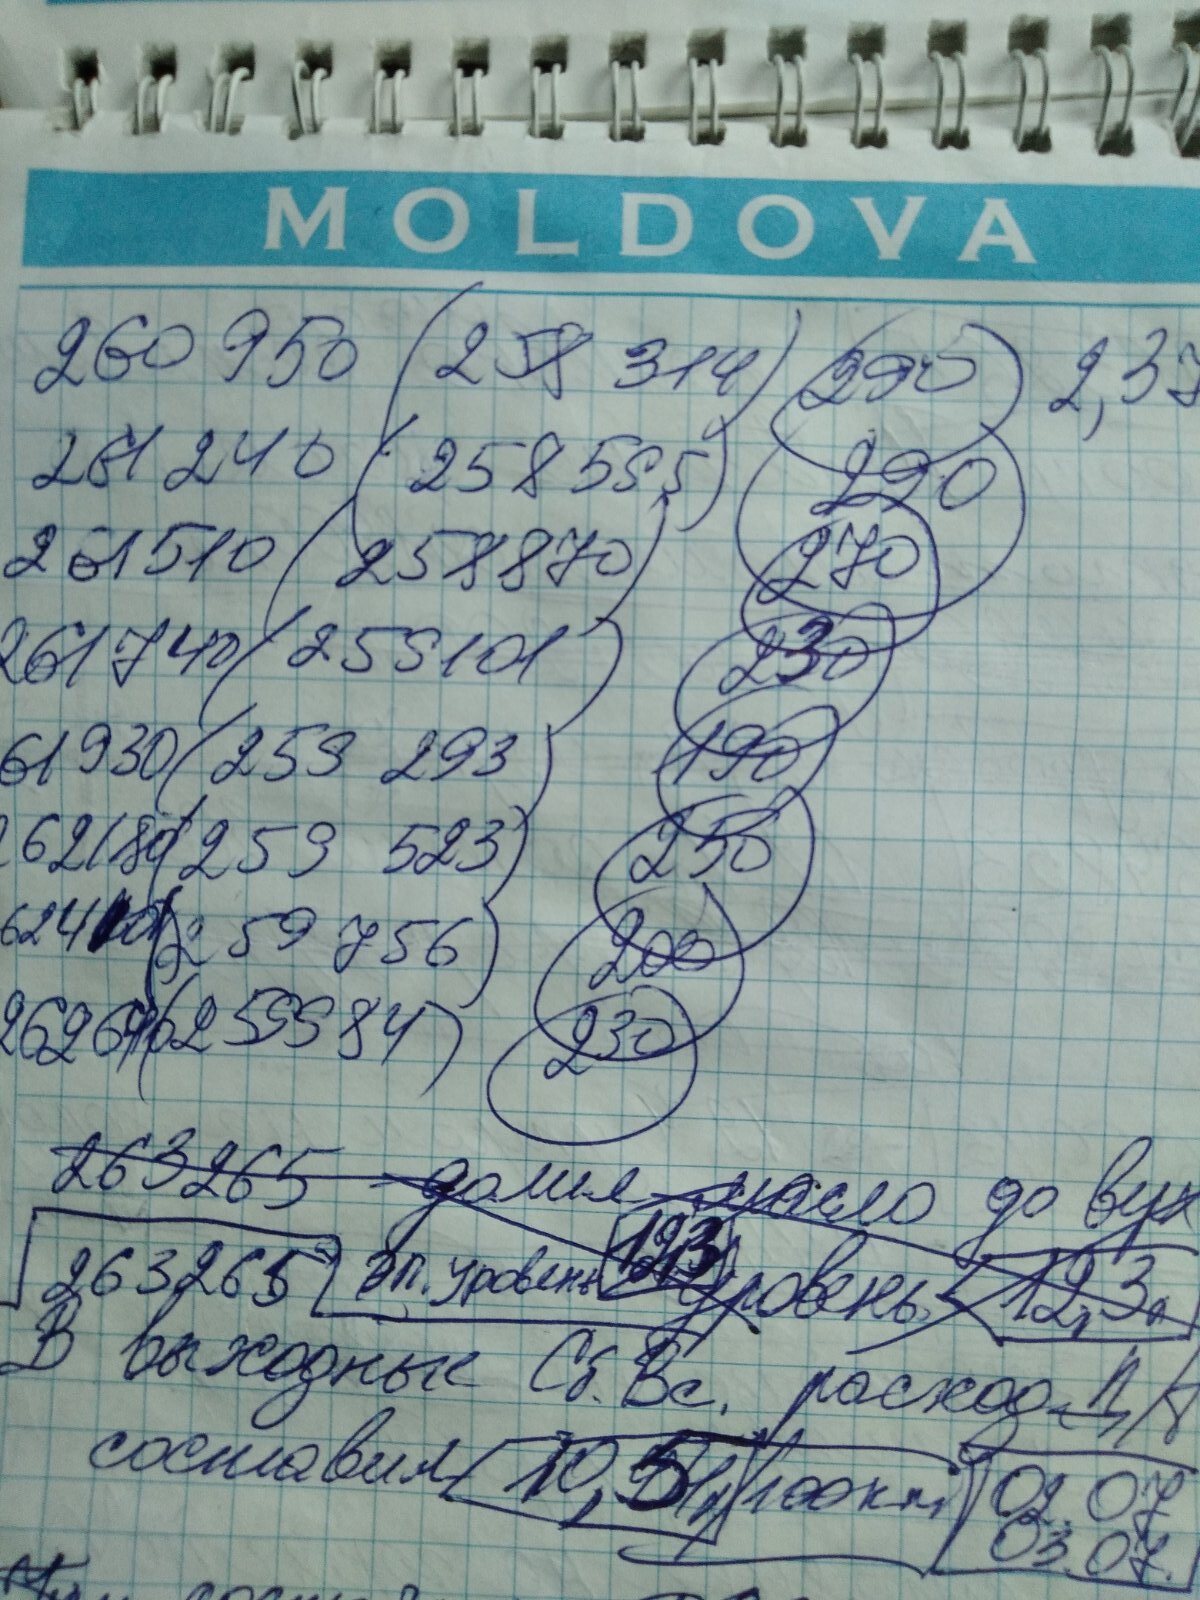 MOLDOVA
260 950 (258 314) 290 2,37
261 240 (258 585) 290
261510 (258870) 270
261740 (259101) 230
61 930 (259 293) 190
262180 (259 523) 250
(259 756) 200
(259984) 230
263265 долил масло до
263265 эл. уровень 12,3 уровень 12,3л
В выходные Сб. Вс. расход
составил 10,51л/100км, 02.07
03.07.